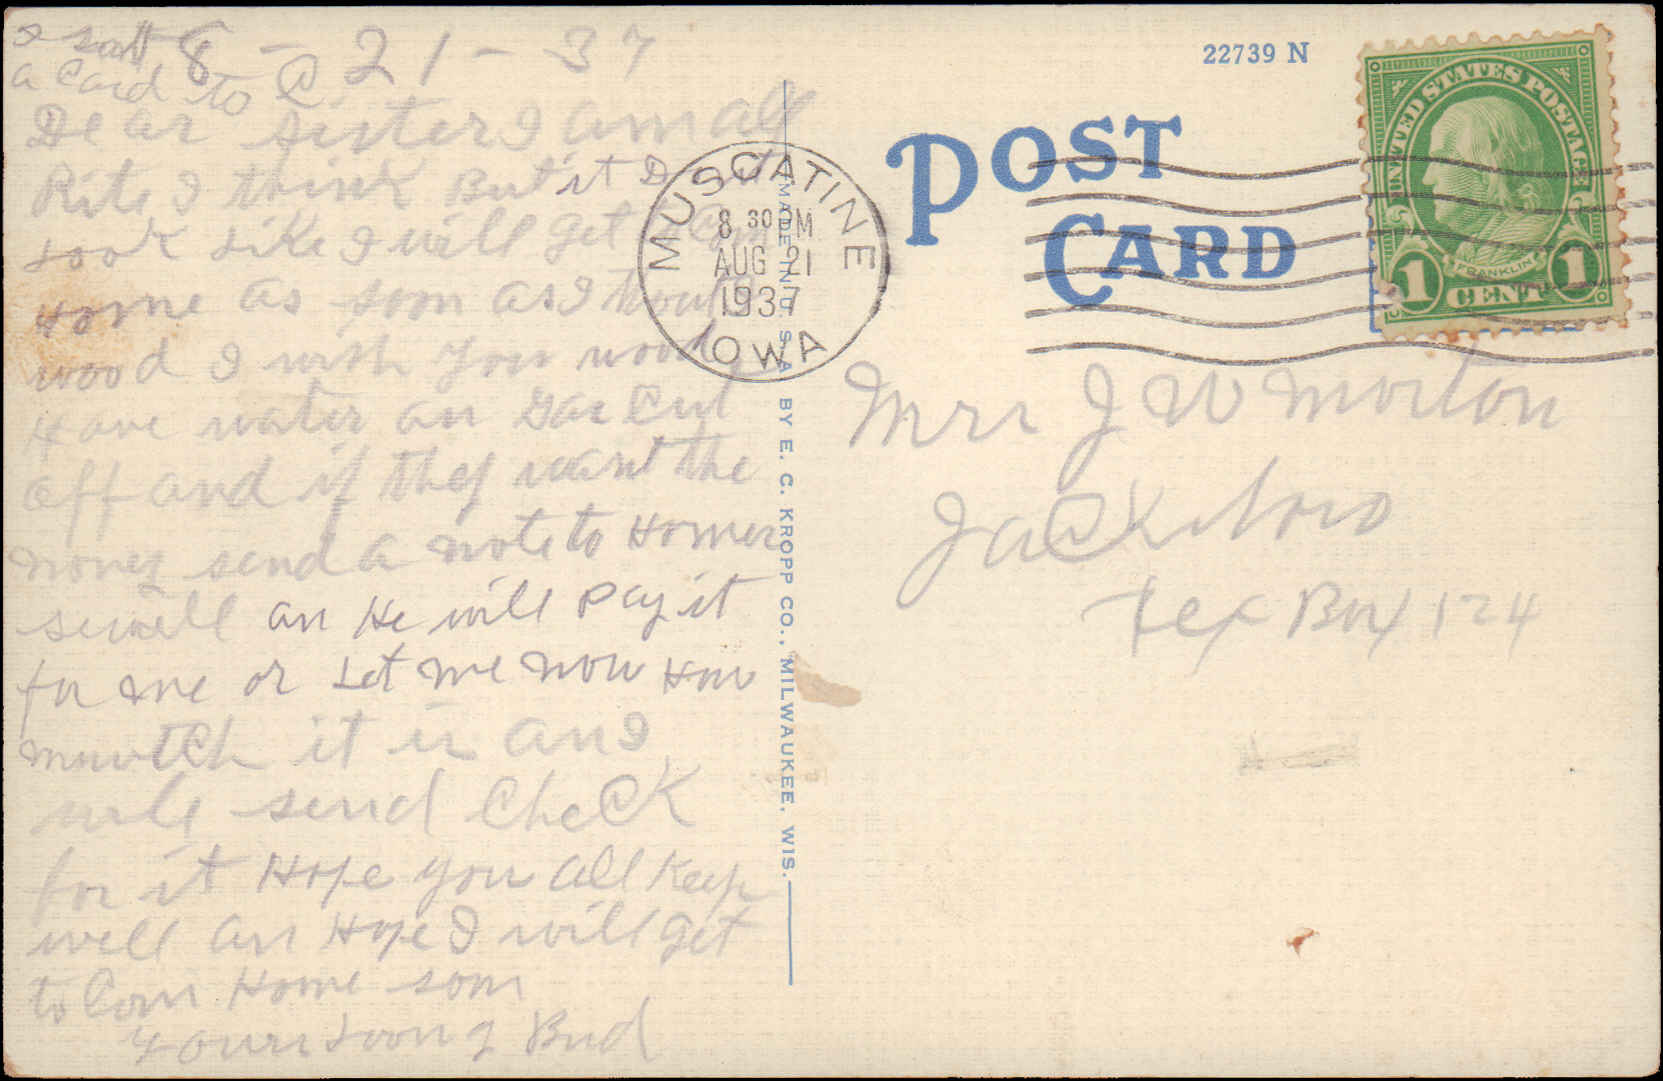 I sent 8 - 21 - 37
a Card to C
Dear sister I am all
Rite I think But it Dont
look Like I will get to Com
Home as soon as I thout I
wood I wish you wood
Have water an Gas Cut
off and if they want the
money send a note to Homer
sewell an He will Pay it
for me or Let me now How
muutch it is an I
will send CheCK
for it Hope you all Keep
well an Hope I will get
to Com Home soon
Yours Bud
22739 N
POST
CARD
MADE IN U. S. A. BY E. C. KROPP CO., MILWAUKEE, WIS.
MUSCATINE
8 30 PM
AUG 21
1937
IOWA
UNITED STATES POSTAGE
FRANKLIN
1 CENT 1
Mrs J W Morton
JaCksboro
Tex Box 124